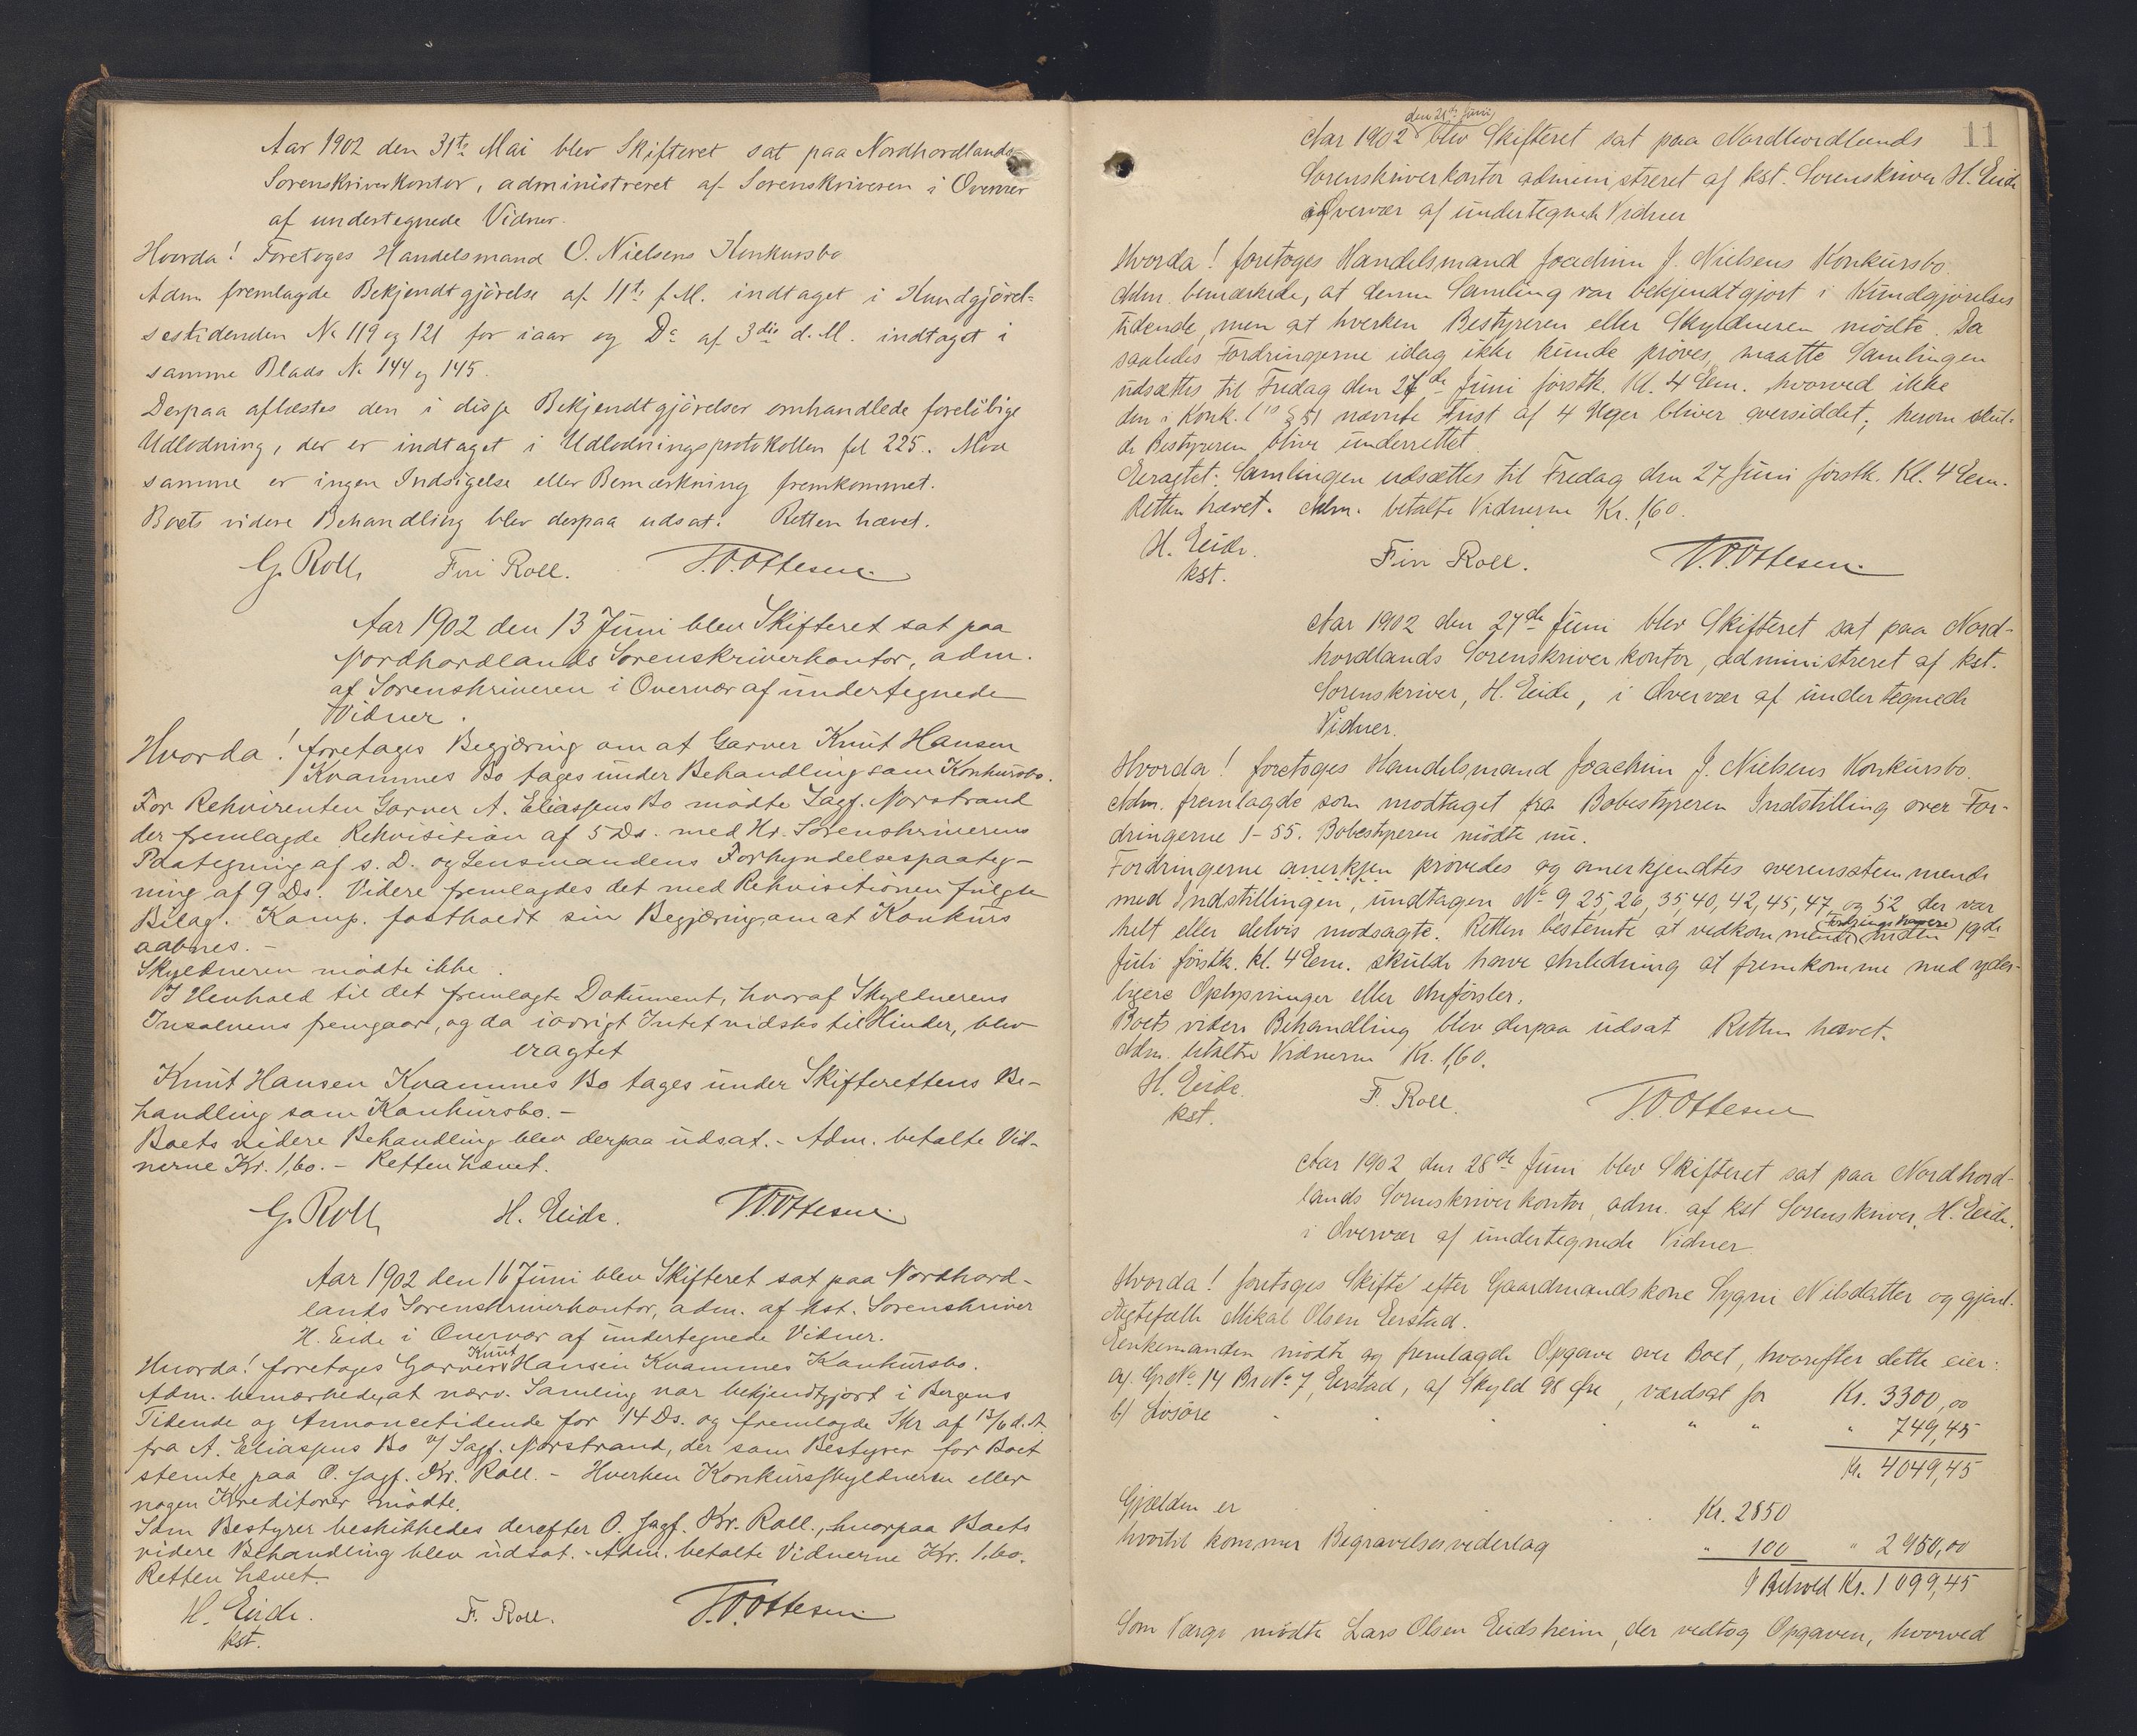 Aar 1902 den 31te Mai blev Skifteret sat paa Nordhordlands
Sorenskriverkontor, administreret af Sorenskriveren i Overvær
af undertegnede Vidner.
Hvorda! Foretoges Handelsmand O. Nielsens Konkursbo
Adm. fremlagde Bekjendtgjörelse af 11te f.M. indtaget i Kundgjörel-
sestidenden No 119 og 121 for iaar og Do af 3die d.M. indtaget i
samme Blads No 144 og 145.
Derpaa aflæstes den i disse Bekjendtgjörelser omhandlede forelöbige
Udlodning, der er indtaget i Udlodningsprotokollen fol 225. Mod
samme er ingen Indsigelse eller Bemærkning fremkommet.
Boets videre Behandling blev derpaa udsat. Retten hævet.
G. Roll Fin Roll. T.O. Ottesen.
Aar 1902 den 13 Juni blev Skifteret sat paa
Nordhordlands Sorenskriverkontor, adm.
af Sorenskriveren i Overvær af undertegnede
Vidner.
Hvorda! foretages Begjæring om at Garver Knut Hansen
Kvammes Bo tages under Behandling som Konkursbo.
For Rekvirenten Garver A. Eliassens Bo mödte Sagf. Norstrand
der fremlagde Rekvisition af 5 Ds. med Hr. Sorenskriverens
Paategning af s. D. og Lensmandens Forkyndelsespaateg-
ning af 9 Ds. Videre fremlagdes det med Rekvisitionen fulgte
Bilag. Komp. fastholdt sin Begjæring om at Konkurs
aabnes. -
Skyldneren mödte ikke.
I Henhold til det fremlagte Dokument, hvoraf Skyldnerens
Insolvens fremgaar, og da iövrigt Intet vidstes til Hinder, blev
eragtet
Knut Hansen Kvammes Bo tages under Skifterettens Be-
handling som Konkursbo. -
Boets videre Behandling blev derpaa udsat. - Adm. betalte Vid-
nerne Kr. 1,60. - Retten hævet.
G. Roll H. Eide. T.O. Ottesen.
Aar 1902 den 16 Juni blev Skifteret sat paa Nordhord-
lands Sorenskriverkontor, adm. af kst. Sorenskriver
H. Eide i Overvær af undertegnede Vidner.
Hvorda! foretages Garver Knut Hansen Kvammes Konkursbo.
Adm. bemærkede, at nærv. Samling var bekjendtgjort i Bergens
Tidende og Annoncetidende for 14 Ds. og fremlagde Skr af 13/6 d. A.
fra A. Eliassens Bo v/ Sagf. Norstrand, der som Bestyrer for Boet
stemte paa O. sagf. Kr. Roll. - Hverken Konkursskyldneren eller
nogen Kreditorer mödte.
Som Bestyrer beskikkedes derefter O. sagf. Kr. Roll., hvorpaa Boets
videre Behandling blev udsat. - Adm. betalte Vidnerne Kr. 1.60.
Retten hævet.
H. Eide. F. Roll. T.O. Ottesen.
kst.
11
Aar 1902 den 21de Juni blev Skifteret sat paa Nordhordlands
Sorenskriverkontor administreret af kst. Sorenskriver H. Eide
i Overvær af undertegnede Vidner
Hvorda! foretoges Handelsmand Joachim J. Nielsens Konkursbo.
Adm. bemærkede, at denne Samling var bekjendtgjort i Kundgjörelses
tidende, men at hverken Bestyreren eller Skyldneren mödte. Da
saaledes Fordringerne idag ikke kunde pröves, maatte Samlingen
udsættes til Fredag den 27de Juni förstk. Kl. 4 Em. hvorved ikke
den i Konk. l. § 51 nævnte Frist af 4 Uger bliver oversiddet; herom skul-
de Bestyreren blive underrettet.
Eragtet: Samlingen udsættes til Fredag den 27 Juni förstk. Kl. 4 Em.
Retten hævet. Adm. betalte Vidnerne Kr. 1,60.
H. Eide. Fin Roll. T.O. Ottesen.
kst.
Aar 1902 den 27de Juni blev Skifteret sat paa Nord-
hordlands Sorenskriverkontor, administreret af kst.
Sorenskriver, H. Eide, i Overvær af undertegnede
Vidner.
Hvorda! foretoges Handelsmand Joachim J. Nielsens Konkursbo.
Adm. fremlagde som modtaget fra Bobestyreren Indstilling over For-
dringerne 1-55. Bobestyreren mödte nu.
Fordringerne anerkjen prövedes og anerkjendtes overensstemmende
med Indstillingen, undtagen No 9, 25, 26, 35, 40, 42, 45, 47 og 52 der var
helt eller delvis modsagte. Retten bestemte at vedkommende Fordringshavere inden 19de
Juli förstk. kl. 4 Em. skulde have Anledning at fremkomme med yder-
ligere Oplysninger eller Anförsler.
Boets videre Behandling blev derpaa udsat Retten hævet.
Adm. betalte Vidnerne Kr. 1,60.
H. Eide. F. Roll. T.O. Ottesen
kst.
Aar 1902 den 28de Juni blev Skifteret sat paa Nordhord-
lands Sorenskriverkontor, adm. af kst Sorenskriver, H. Eide.
i Overvær af undertegnede Vidner.
Hvorda! foretoges Skifte efter Gaardmandskone Sygni Nilsdatter og gjenl.
Ægtefælle Mikal Olsen Eerstad.
Enkemanden mödte og fremlagde Opgave over Boet, hvorefter dette eier:
a). Gr No 14 Br No 7, Eerstad, af Skyld 98 Öre, værdsat for Kr. 3300,00
b) Lösöre " " " 749,45
Kr. 4049,45
Gjælden er Kr. 2850
hvortil kommer Begravelsesvederlag " 100 " 2950,00
I Behold Kr. 1099,45
Som Værge mödte Lars Olsen Eidsheim, der vedtog Opgaven, hvorved